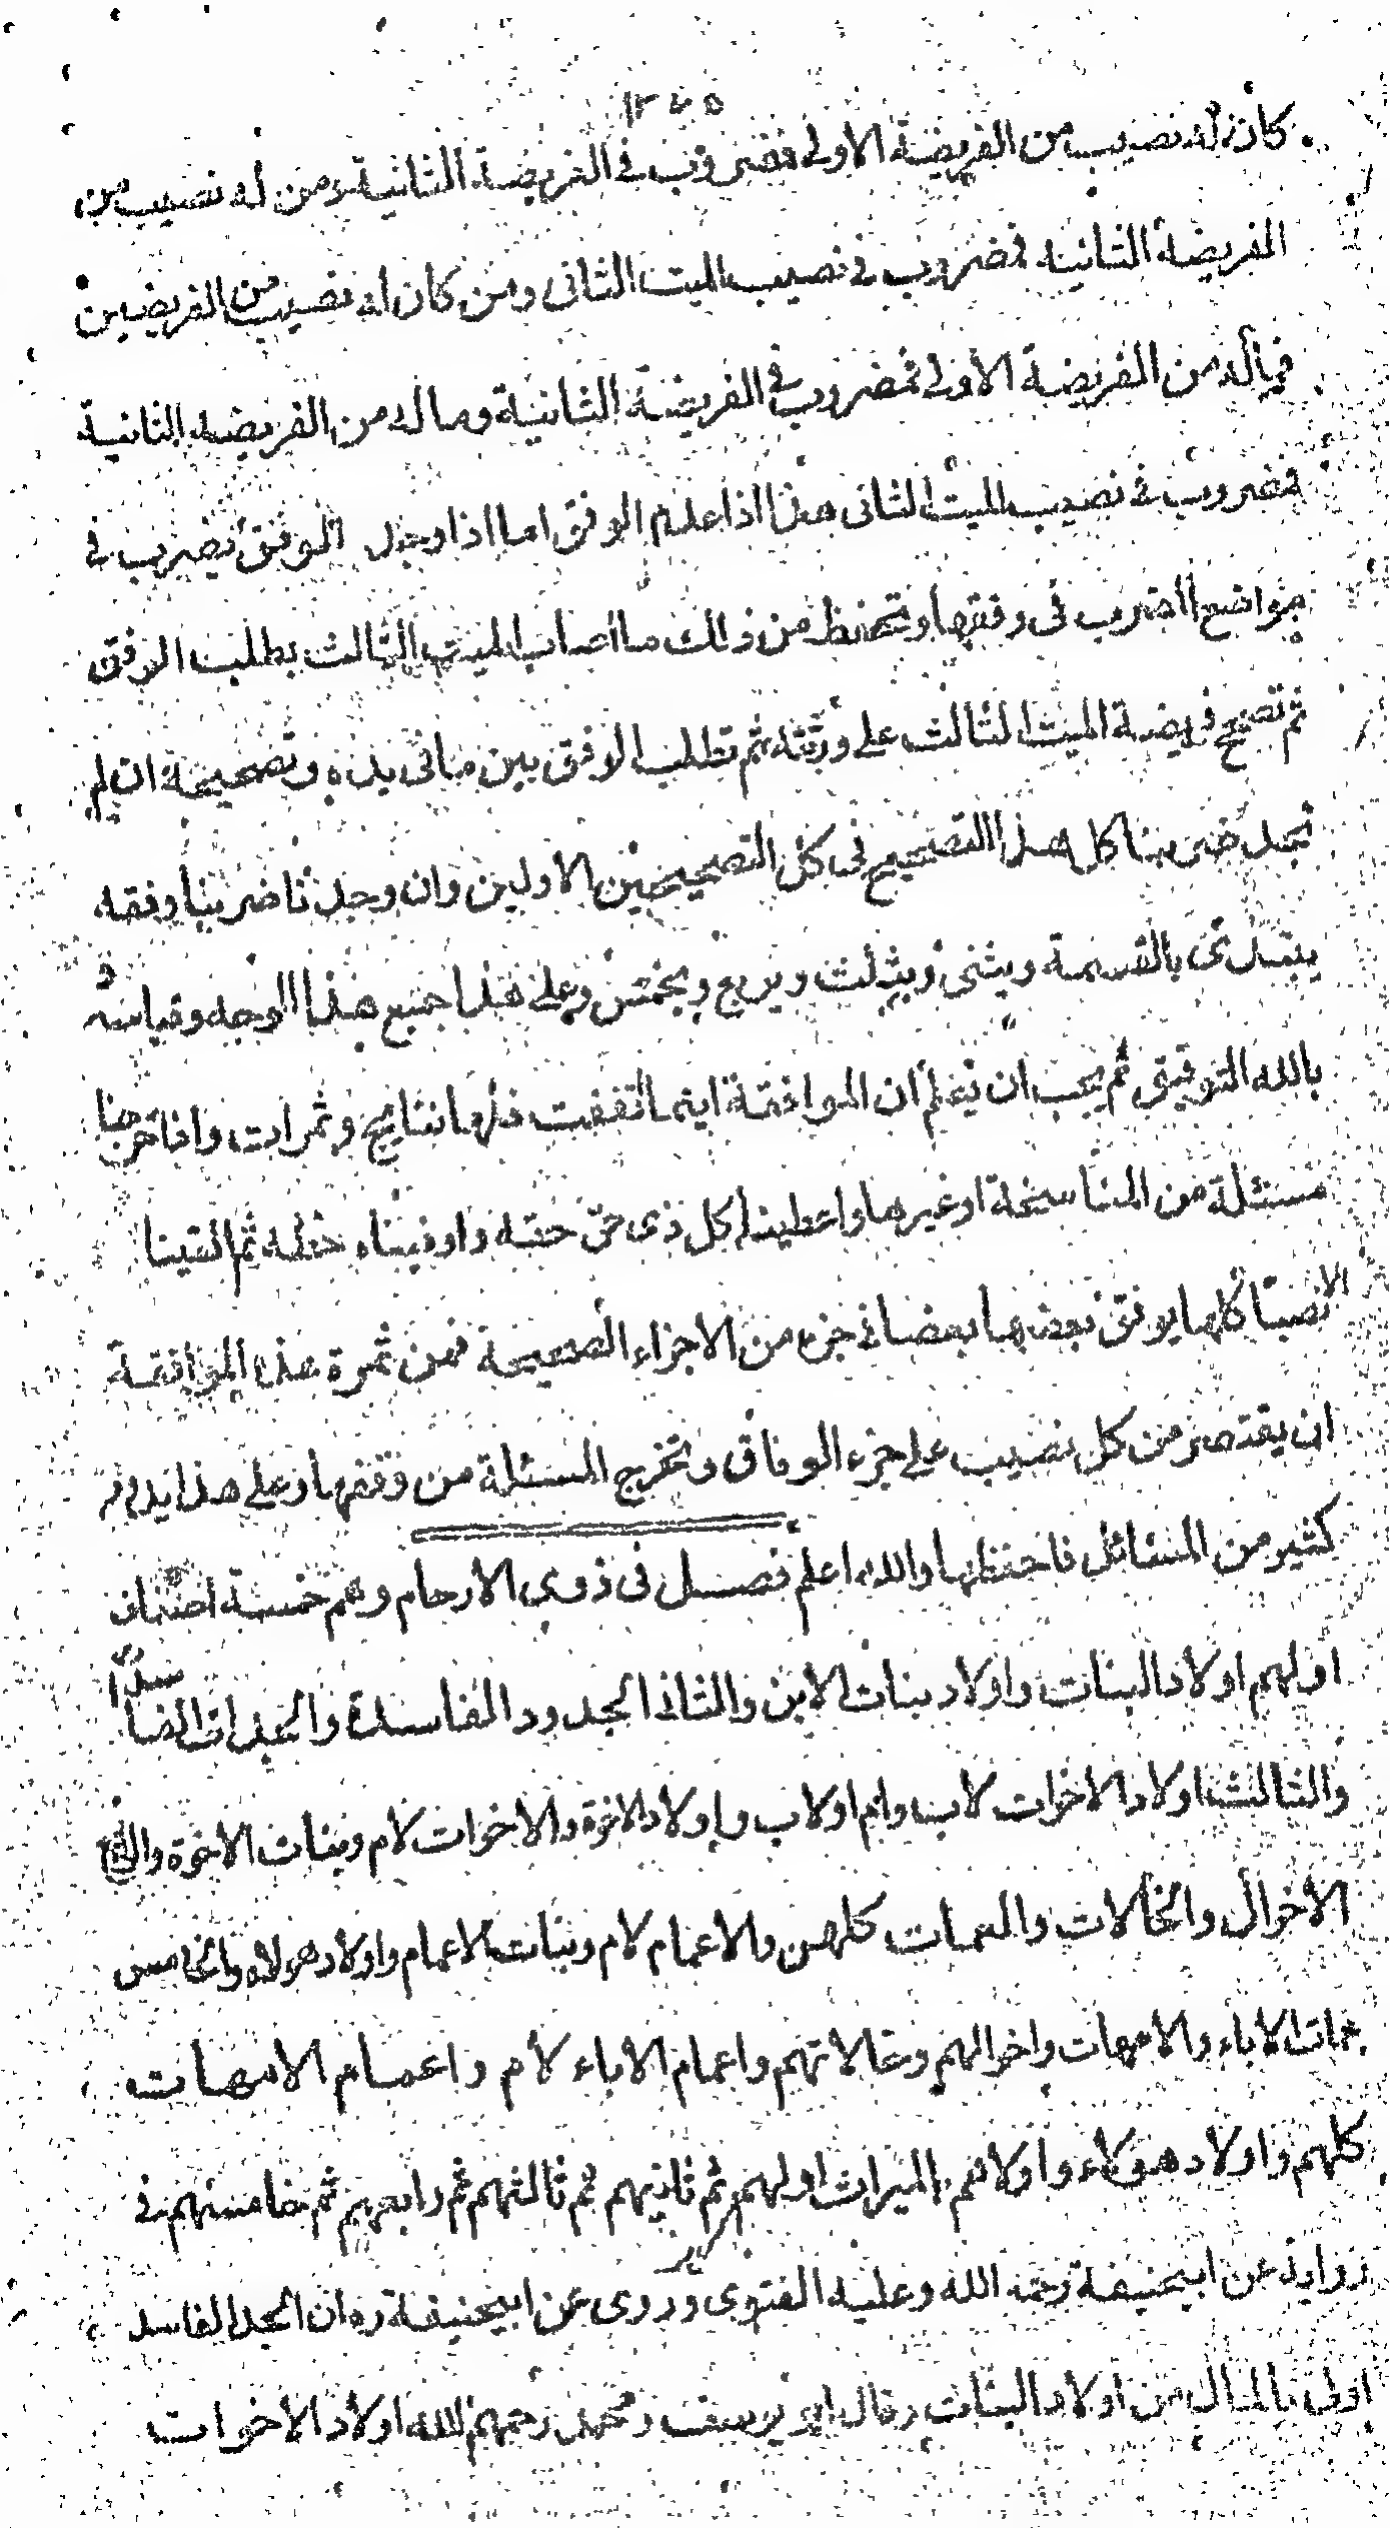 ١٢٤٥
كان له نصيب من الفريضة الاولى فمضروب فى الفريضة الثانية ومن له نصيب من
الفريضة الثانية فمضروب فى نصيب الميت الثانى ومن كان له نصيب من الفريضين
فماله من الفريضة الاولى فمضروب فى الفريضة الثانية وماله من الفريضة الثانية
فمضروب فى نصيب الميت الثانى هذا اذا عدم الوفق اما اذا وجد الوفق نضرب فى
مواضع الضرب فى وفقها ويحفظ من ذلك ما اصاب الميت الثالث بطلب الوفق
ثم تصحح فريضة الميت الثالث على ورثته ثم تطلب الوفق بين مافى يده وتصحيحة ان لم
نجد ضربنا كل هذا التصحيح فى كل التصحيحين الاولين وان وجدنا ضربنا وفقه
يبتدئ بالقسمة ويثنى ويثلث ويربع ويخمس وعلى هذا جميع هذا الوجه وقياسه و
بالله التوفيق ثم يجب ان تعلم ان الموافقة اينما اتفقت فلها نتايج وثمرات واذا خرجنا
مسئلة من المناسخة او غيرها واعطينا كل ذى حق حقه واوفيناه حظه ثم القينا
الانصبا كلها يوفق بعضها بعضا فى جزء من الاجزاء الصحيحة فمن ثمرة هذه الموافقة
ان يقتصر من كل نصيب على جزء الوفاق وتخرج المسئلة من وفقها وعلى هذا يدور
كثير من المسائل فاحفظها والله اعلم فصل فى ذوى الارحام وهم خمسة اصناف
اولهم اولاد البنات واولاد بنات الابن والثانى الجدود الفاسدة والجدات الفاسدات
والثالث اولاد الاخوات لاب وام اولاب واولاد الاخوة والاخوات لام وبنات الاخوة والرابع
الاخوال والخالات والعمات كلهن والاعمام لام وبنات الاعمام واولاد هولاه والخامس
عمات الاباء والامهات واخوالهم وخالاتهم واعمام الاباء لام واعمام الامهات
كلهم واولاد هؤلاء واولاهم بالميراث اولهم ثم ثانيهم ثم ثالثهم ثم رابعهم ثم خامسهم فى
رواية عن ابيحنيفة رحمه الله وعليه الفتوى وروى عن ابيحنيفة ره ان الجد الفاسد
اولى بالمال من اولاد البنات وقال ابو يوسف ومحمد رحمهم الله اولاد الاخوات